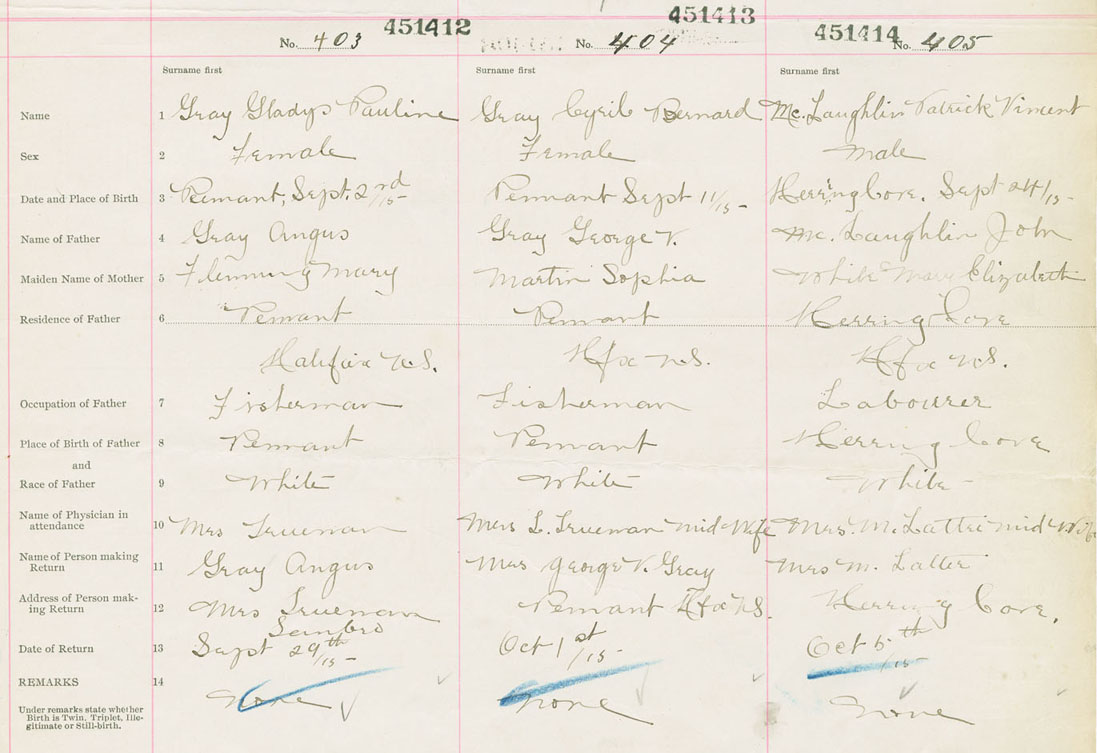 451412 451413 451414
No. 403 No. 404 No. 405
Surname first Surname first Surname first
Name 1 Gray Gladys Pauline Gray Cyril Bernard Mc. Laughlin Patrick Vincent
Sex 2 Female Female Male
Date and Place of Birth 3 Pennant, Sept. 2nd/15- Pennant Sept 11/15- Herring Cove. Sept 24/15-
Name of Father 4 Gray Angus Gray George V. Mc. Laughlin John
Maiden Name of Mother 5 Flemming Mary Martin Sophia White Mary Elizabeth
Residence of Father 6 Pennant Pennant Herring Cove
Halifax N.S. Hfx N.S. Hfx N.S.
Occupation of Father 7 Fisherman Fisherman Labourer
Place of Birth of Father 8 Pennant Pennant Herring Cove
and
Race of Father 9 White White White -
Name of Physician in
attendance 10 Mrs Trueman Mrs L. Trueman Mid Wife Mrs. M. Mid Wife
Name of Person making
Return 11 Gray Angus Mrs George V. Gray Mrs M. Latter
Address of Person mak-
ing Return 12 Mrs Trueman Pennant Hfx N.S. Herring Cove.
Sambro
Date of Return 13 Sept 29th/15- Oct 1st/15- Oct 5th/15-
REMARKS 14 None None None
Under remarks state whether
Birth is Twin, Triplet, Ille-
gitimate or Still-birth.